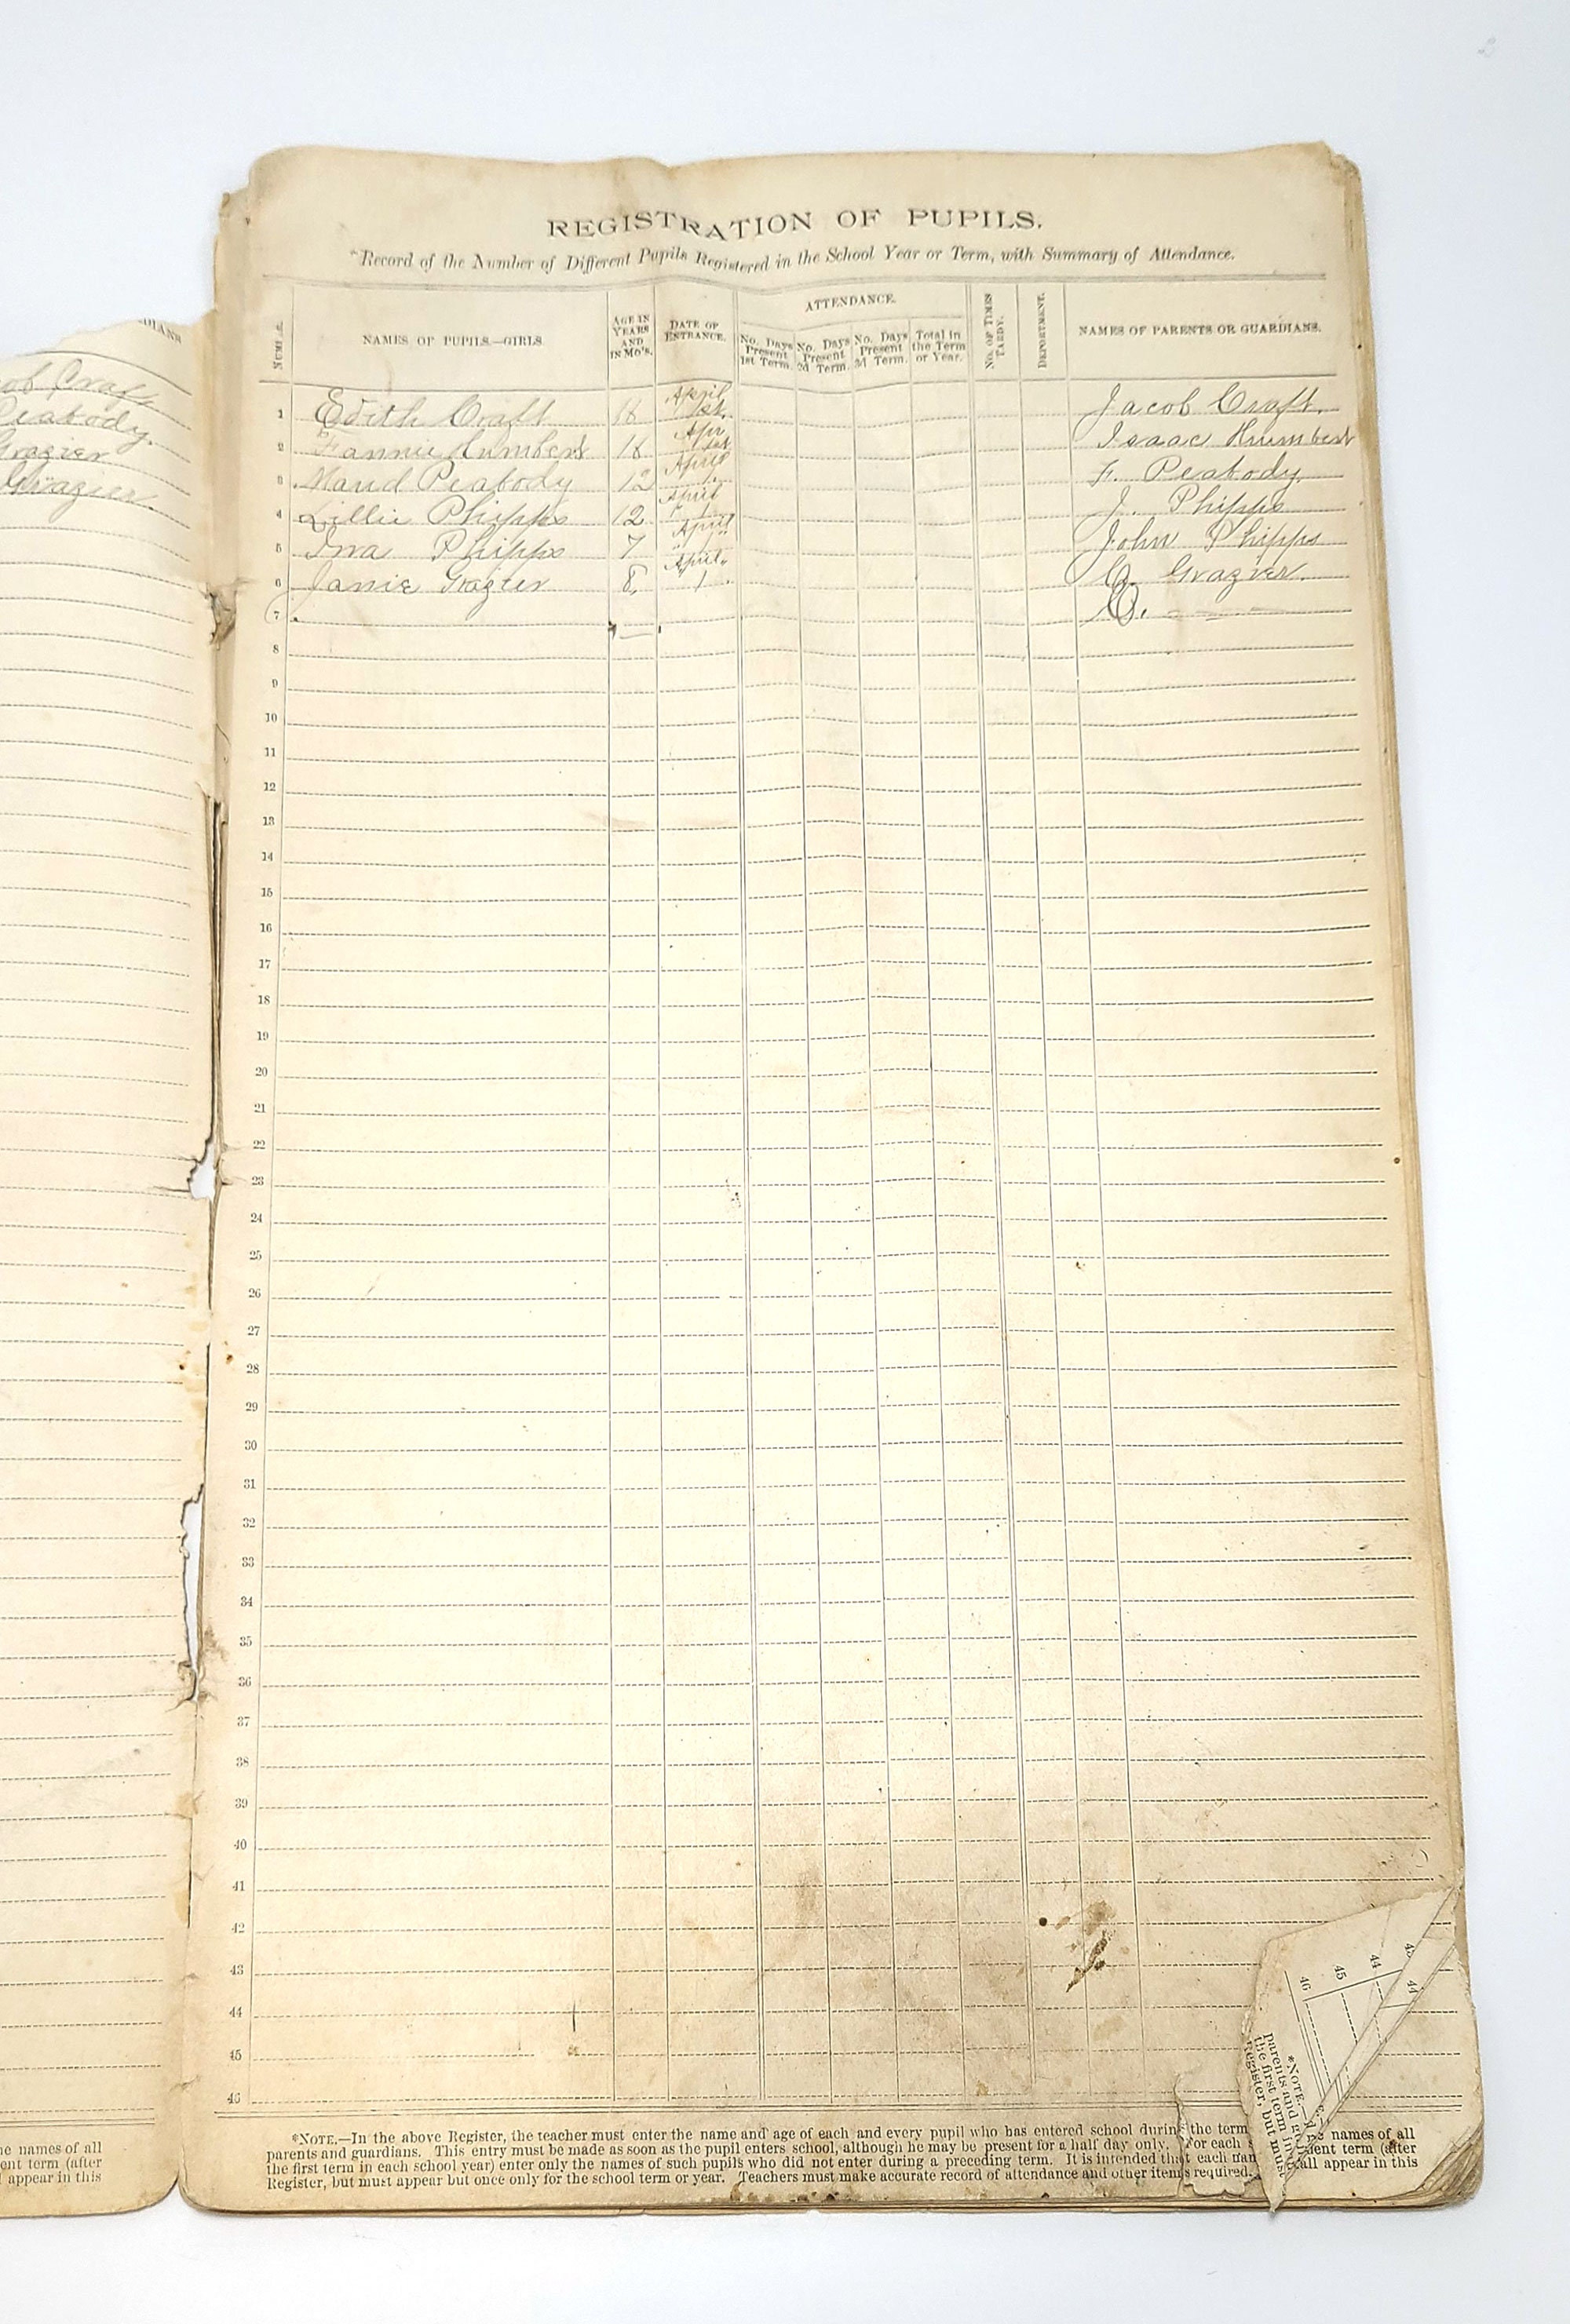 DIANS
ob Craft
Peabody.
Grazier
Grazier.
REGISTRATION OF PUPILS.
*Record of the Number of Different Pupils Registered in the School Year or Term, with Summary of Attendance.
NAMES OF PUPILS.—GIRLS.
AGE IN YEARS AND IN MO'S.
DATE OF ENTRANCE.
ATTENDANCE.
No. Days Present 1st Term.
No. Days Present 2d Term.
No. Days Present 3d Term.
Total in the Term or Year.
NO. OF TIMES TARDY.
DEPORTMENT.
NAMES OF PARENTS OR GUARDIANS.
1 Edith Craft 18 April 1st. Jacob Craft.
2 Fannie Humbert 18 Apr 1st Isaac Humbert
3 Maud Peabody 12 April 1. F. Peabody
4 Lillie Phipps 12 April 1 J. Phipps
5 Iva Phipps 7 April 1 John Phipps
6 Janie Grazier 8, April 1 C. Grazier.
7 C.
8
9
10
11
12
13
14
15
16
17
18
19
20
21
22
23
24
25
26
27
28
29
30
31
32
33
34
35
36
37
38
39
40
41
42
43
44
45
46
*NOTE.—In the above Register, the teacher must enter the name and age of each and every pupil who has entered school during the term names of all
parents and guardians. This entry must be made as soon as the pupil enters school, although he may be present for a half day only. For each ent term (after
the first term in each school year) enter only the names of such pupils who did not enter during a preceding term. It is intended that each nam all appear in this
Register, but must appear but once only for the school term or year. Teachers must make accurate record of attendance and other items required.
44
45
46
44
*NOTE.—I
parents and
the first term in
Register, but must
e names of all
ent term (after
l appear in this